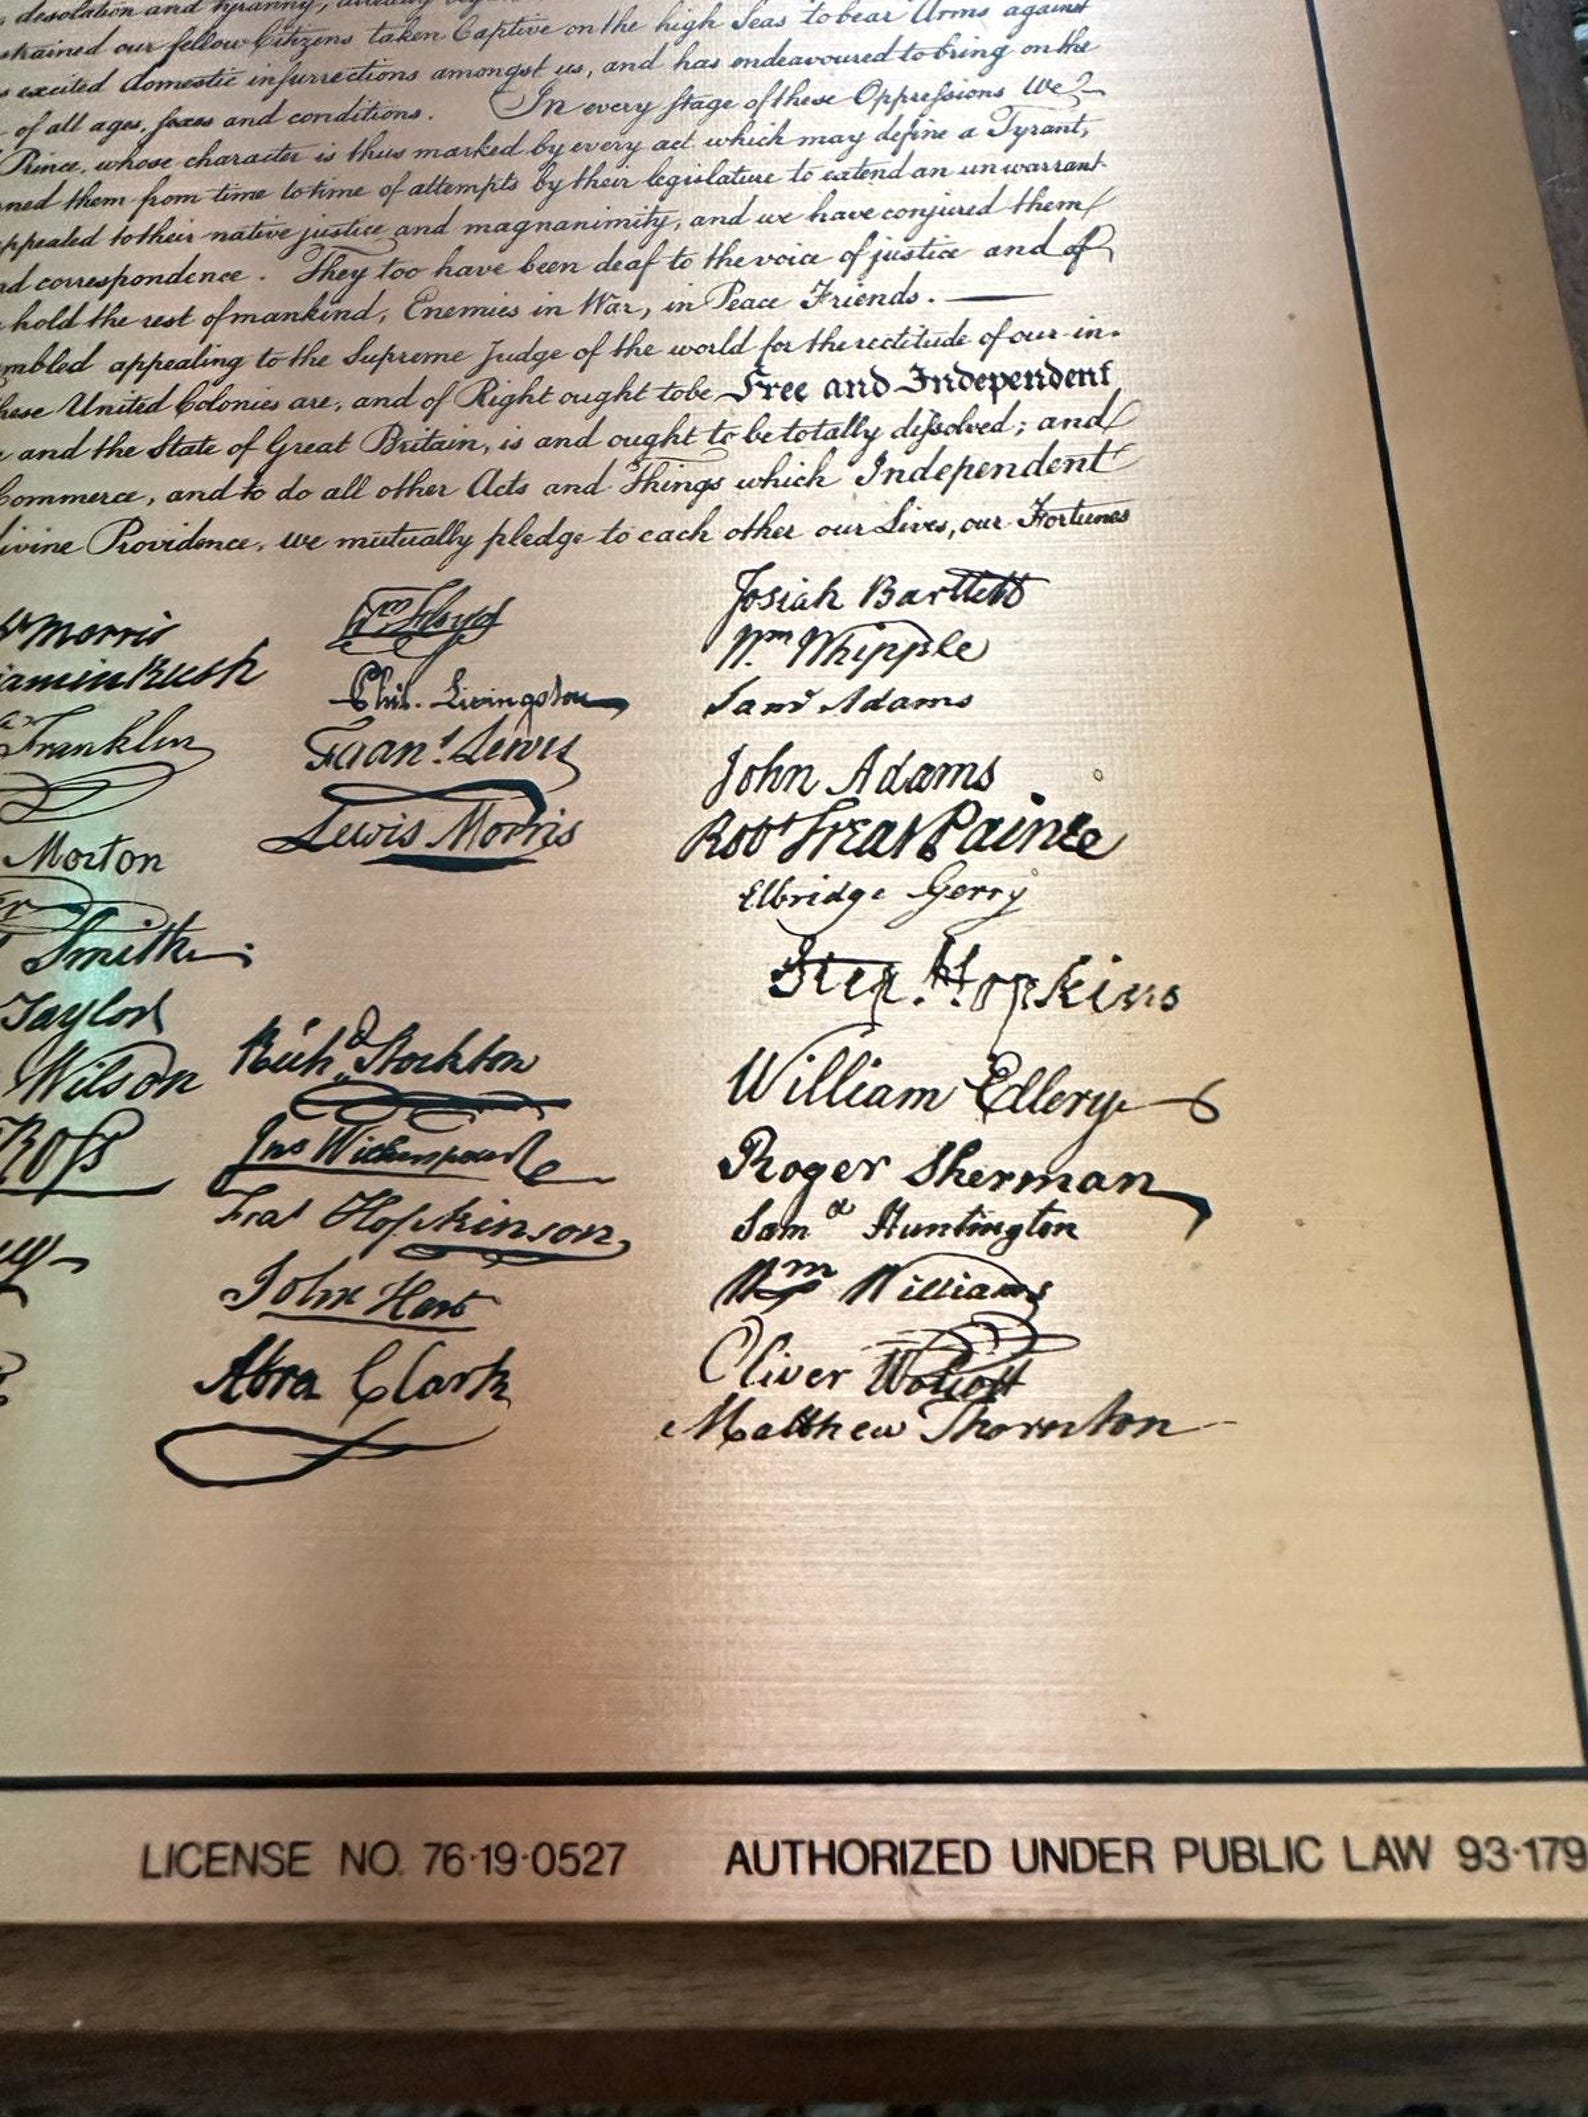 desolation and tyranny, already
strained our fellow Citizens taken Captive on the high Seas to bear Arms against
excited domestic insurrections amongst us, and has endeavoured to bring on the
of all ages, sexes and conditions. In every stage of these Oppressions We
Prince, whose character is thus marked by every act which may define a Tyrant,
ned them from time to time of attempts by their legislature to extend an unwarrant-
appealed to their native justice and magnanimity, and we have conjured them
nd correspondence. They too have been deaf to the voice of justice and of
hold the rest of mankind, Enemies in War, in Peace Friends.
mbled appealing to the Supreme Judge of the world for the rectitude of our in-
hese United Colonies are, and of Right ought to be Free and Independent
and the State of Great Britain, is and ought to be totally dissolved; and
Commerce, and to do all other Acts and Things which Independent
ivine Providence, we mutually pledge to each other our Lives, our Fortunes
Morris
jamin Rush
Franklin
Morton
Smith
Taylor
Wilson
Ross
Wm Floyd
Phil. Livingston
Frans. Lewis
Lewis Morris
Richd. Stockton
Jno Witherspoon
Fras Hopkinson
John Hart
Abra Clark
Josiah Bartlett
Wm Whipple
Saml Adams
John Adams
Robt Treat Paine
Elbridge Gerry
Step. Hopkins
William Ellery
Roger Sherman
Saml Huntington
Wm Williams
Oliver Wolcott
Matthew Thornton
LICENSE NO. 76-19-0527 AUTHORIZED UNDER PUBLIC LAW 93-179